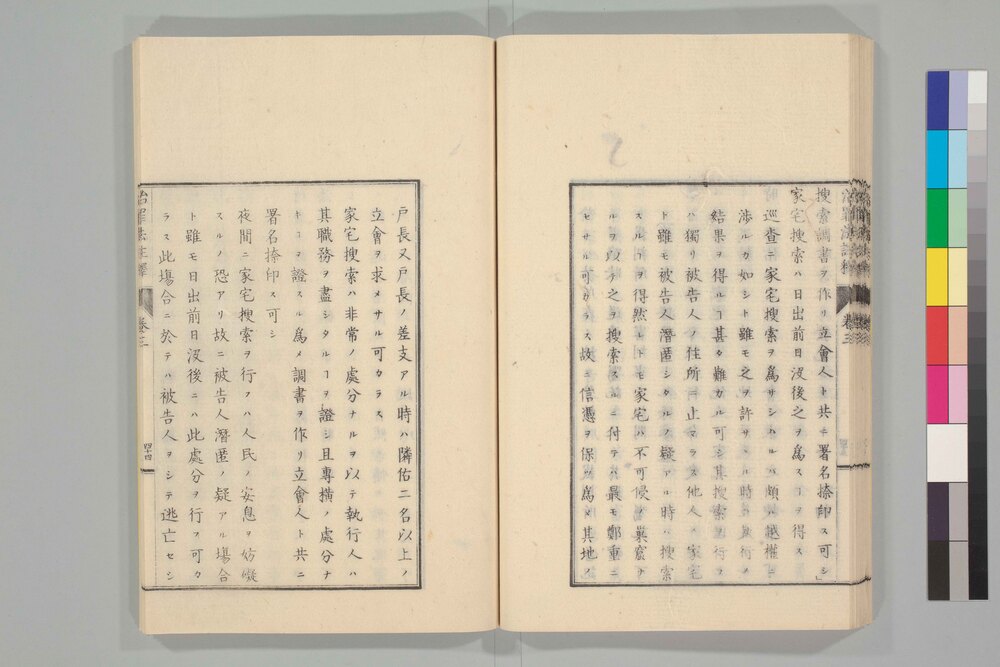 搜索調書ヲ作リ立會人ト共ニ署名捺印ス可シ」
家宅搜索ハ日出前日沒後之ヲ爲スヿヲ得ス
巡査ニ家宅搜索ヲ爲サシムルハ頗ル越權ニ
渉ルカ如シト雖モ之ヲ許サヽル時ハ執行ノ
結果ヲ得ルヿ甚タ難カル可シ其搜索ヲ行フ
ハ獨リ被告人ノ住所ニ止マラス他人ノ家宅
ト雖モ被告人潛匿シタルノ疑アル時ハ搜索
スルヿヲ得然レトモ家宅ハ不可侵ノ巢窟ナ
ルヲ以テ之ヲ搜索スルニ付テハ最モ鄭重ニ
セサル可カラス故ニ信憑ヲ保ツ爲メ其地ノ
戸長又戸長ノ差支アル時ハ隣佑二名以上ノ
立會ヲ求メサル可カラス
家宅搜索ハ非常ノ處分ナルヲ以テ執行人ハ
其職務ヲ盡シタルヿヲ證シ且專横ノ處分ナ
キヿヲ證スル爲メ調書ヲ作リ立會人ト共ニ
署名捺印ス可シ
夜間ニ家宅搜索ヲ行フハ人民ノ安息ヲ妨礙
スルノ恐アリ故ニ被告人潛匿ノ疑アル塲合
ト雖モ日出前日沒後ニハ此處分ヲ行フ可カ
ラス此塲合ニ於テハ被告人ヲシテ逃亡セシ
治罪法註釋 卷三 四十四